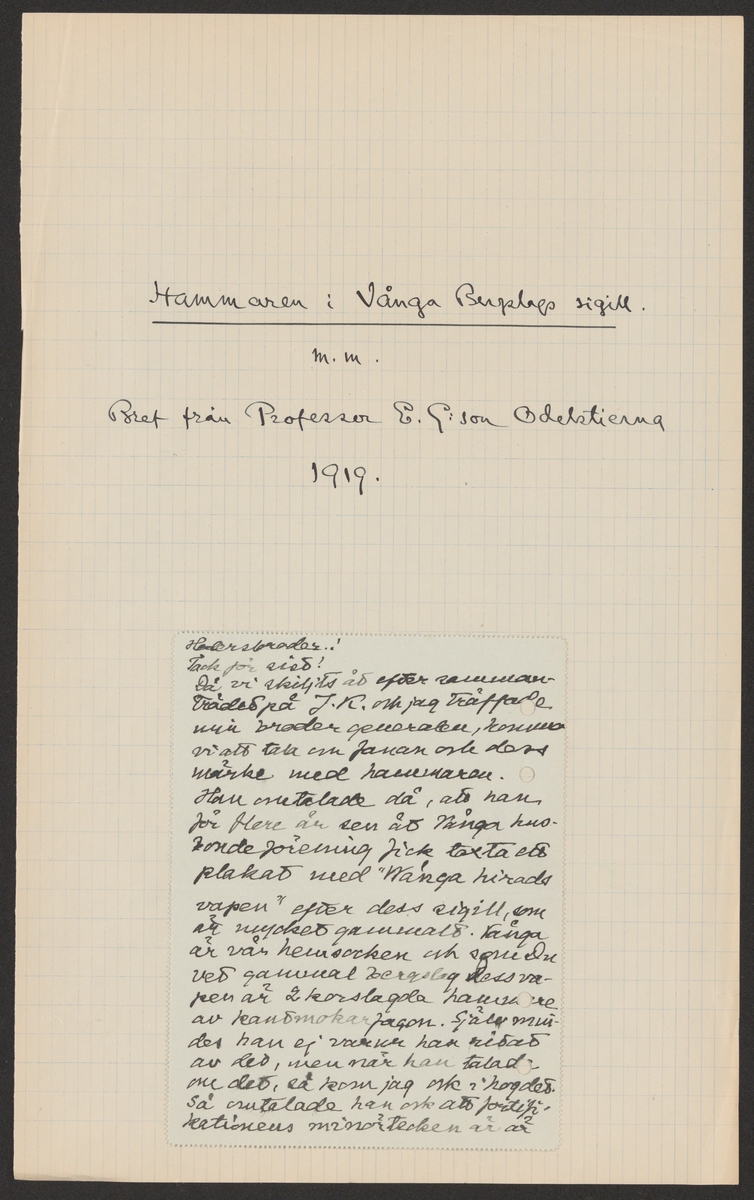 Hammaren i Vånga Bergslags sigill.
m. m.
Bref från Professor E. G:son Odelstierna
1919.
Hedersbroder..!
Tack för sist!
Då vi skiljts åt efter samman-
trädet på J.K. och jag träffade
min broder generalen, kommo
vi att tala om fanan och dess
märke med hammaren.
Han omtalade då, att han
för flere år sen åt Vånga hus-
bondeförening fick texta ett
plakat med "Wånga hirads
vapen" efter dess sigill, som
är mycket gammalt. Vånga
är vår hemsocken och som Du
vet gammal bergslag dess va-
pen är 2 korslagda hammare
av kantmokarfaçon. Själv min-
des han ej varur han ritat
av det, men när han talade
om det, så kom jag ock i hogdet.
Så omtalade han ock att fortifi-
kationens minörtecken är är